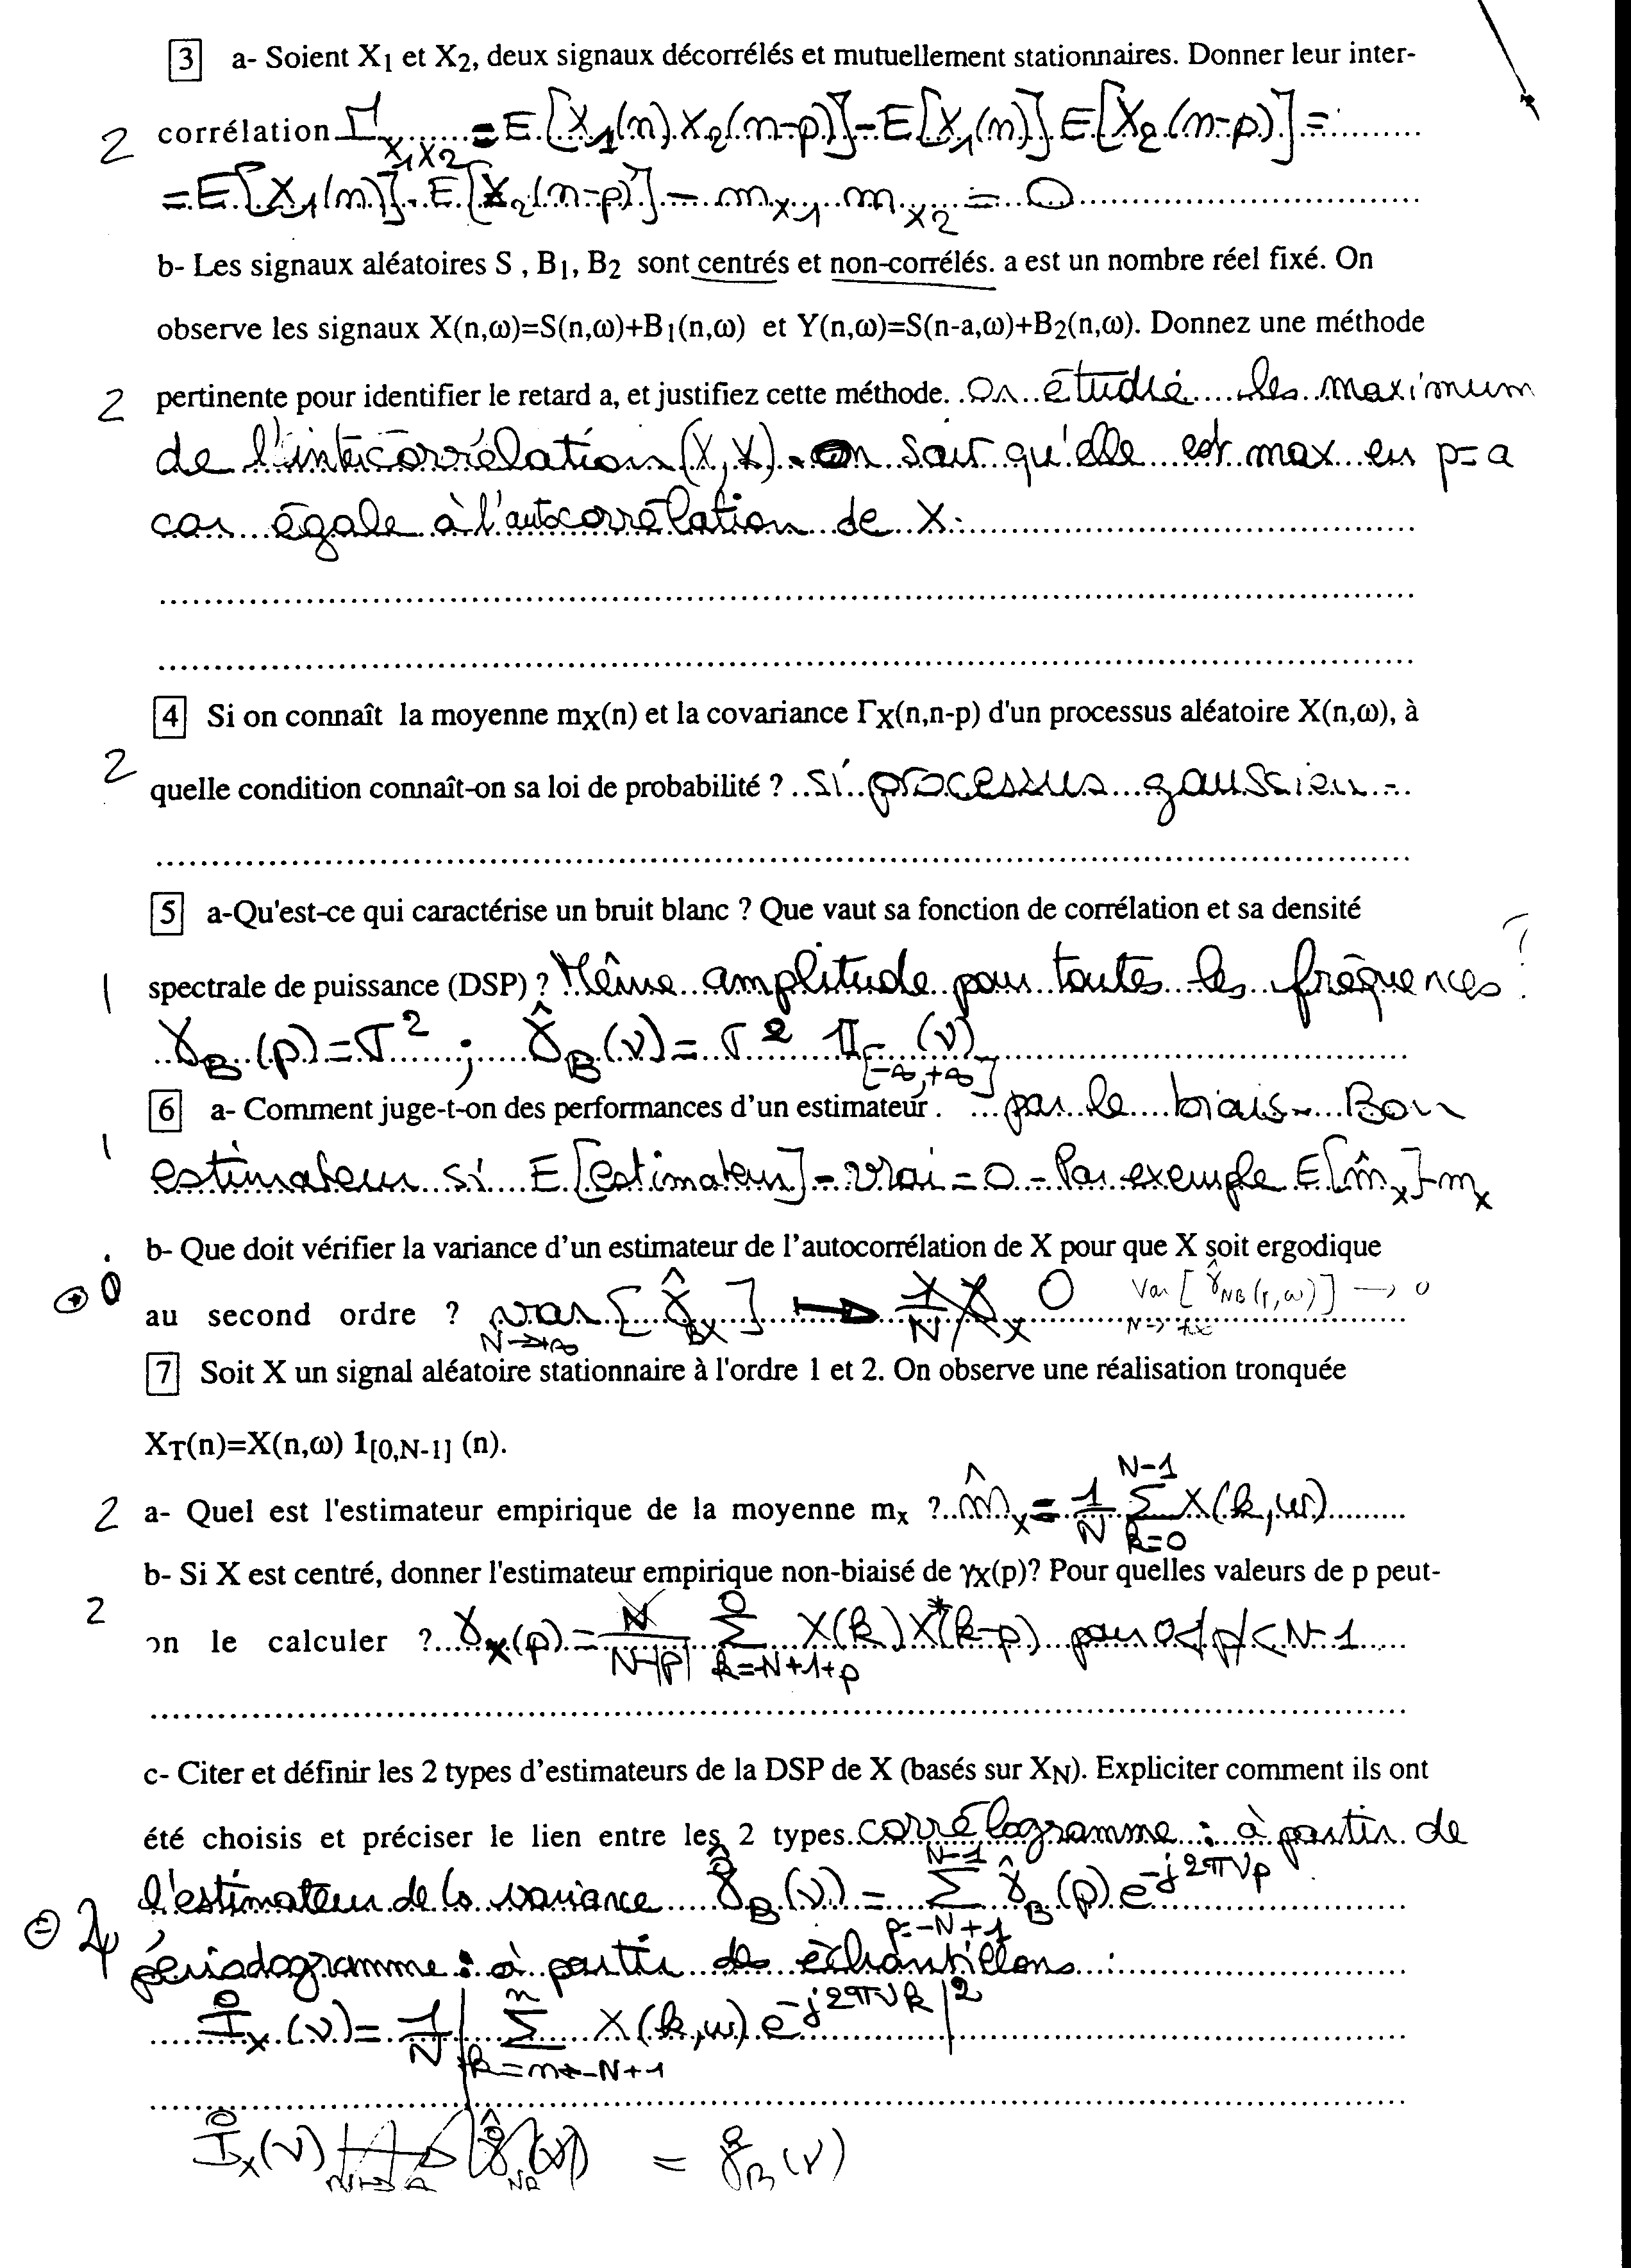 3 a- Soient X1 et X2, deux signaux décorrélés et mutuellement stationnaires. Donner leur inter-
2 corrélation Γ_X1X2 = E[X1(n) X2(n-p)] - E[X1(n)] E[X2(n-p)] =
= E[X1(n)] . E[X2(n-p)] - m_X1 m_X2 = 0
b- Les signaux aléatoires S , B1, B2 sont centrés et non-corrélés. a est un nombre réel fixé. On
observe les signaux X(n,ω)=S(n,ω)+B1(n,ω) et Y(n,ω)=S(n-a,ω)+B2(n,ω). Donnez une méthode
2 pertinente pour identifier le retard a, et justifiez cette méthode. On étudie les maximum
de l'intercorrélation (X,Y). On sait qu'elle est max en p=a
car égale à l'autocorrélation de X.
4 Si on connaît la moyenne mX(n) et la covariance ΓX(n,n-p) d'un processus aléatoire X(n,ω), à
2 quelle condition connaît-on sa loi de probabilité ? si processus gaussien -
5 a-Qu'est-ce qui caractérise un bruit blanc ? Que vaut sa fonction de corrélation et sa densité
1 spectrale de puissance (DSP) ? Même amplitude pour toutes les fréquences ?
γ_B(p) = σ² ; γ̂_B(ν) = σ² 1I_[-∞,+∞](ν)
6 a- Comment juge-t-on des performances d'un estimateur . par le biais - Bon
1 estimateur si E[estimateur] - vrai = 0 - Par exemple E[m̂_x] - m_x
b- Que doit vérifier la variance d'un estimateur de l'autocorrélation de X pour que X soit ergodique
0 au second ordre ? var_N→+∞ [γ̂_BX] → 0 Var[γ̂_NB(p,ω)] → 0 N→+∞
7 Soit X un signal aléatoire stationnaire à l'ordre 1 et 2. On observe une réalisation tronquée
XT(n)=X(n,ω) 1[0,N-1] (n).
2 a- Quel est l'estimateur empirique de la moyenne mx ? m̂_x = 1/N Σ_{k=0}^{N-1} X(k,ω)
b- Si X est centré, donner l'estimateur empirique non-biaisé de γX(p)? Pour quelles valeurs de p peut-
2 on le calculer ? γ_X(p) = N/(N-|p|) Σ_{k=-N+1+p}^{0} X(k) X*(k-p) pour 0<|p|<N-1
c- Citer et définir les 2 types d'estimateurs de la DSP de X (basés sur XN). Expliciter comment ils ont
été choisis et préciser le lien entre les 2 types corrélogramme : à partir de
l'estimateur de la variance γ̂_B(ν) = Σ_{p=-N+1}^{N-1} γ̂_B(p) e^{-j2πνp}
périodogramme : à partir des échantillons :
I_x(ν) = 1/N |Σ_{k=n-N+1}^{n} X(k,ω) e^{-j2πνk}|²
I_x(ν) = γ_B(ν)